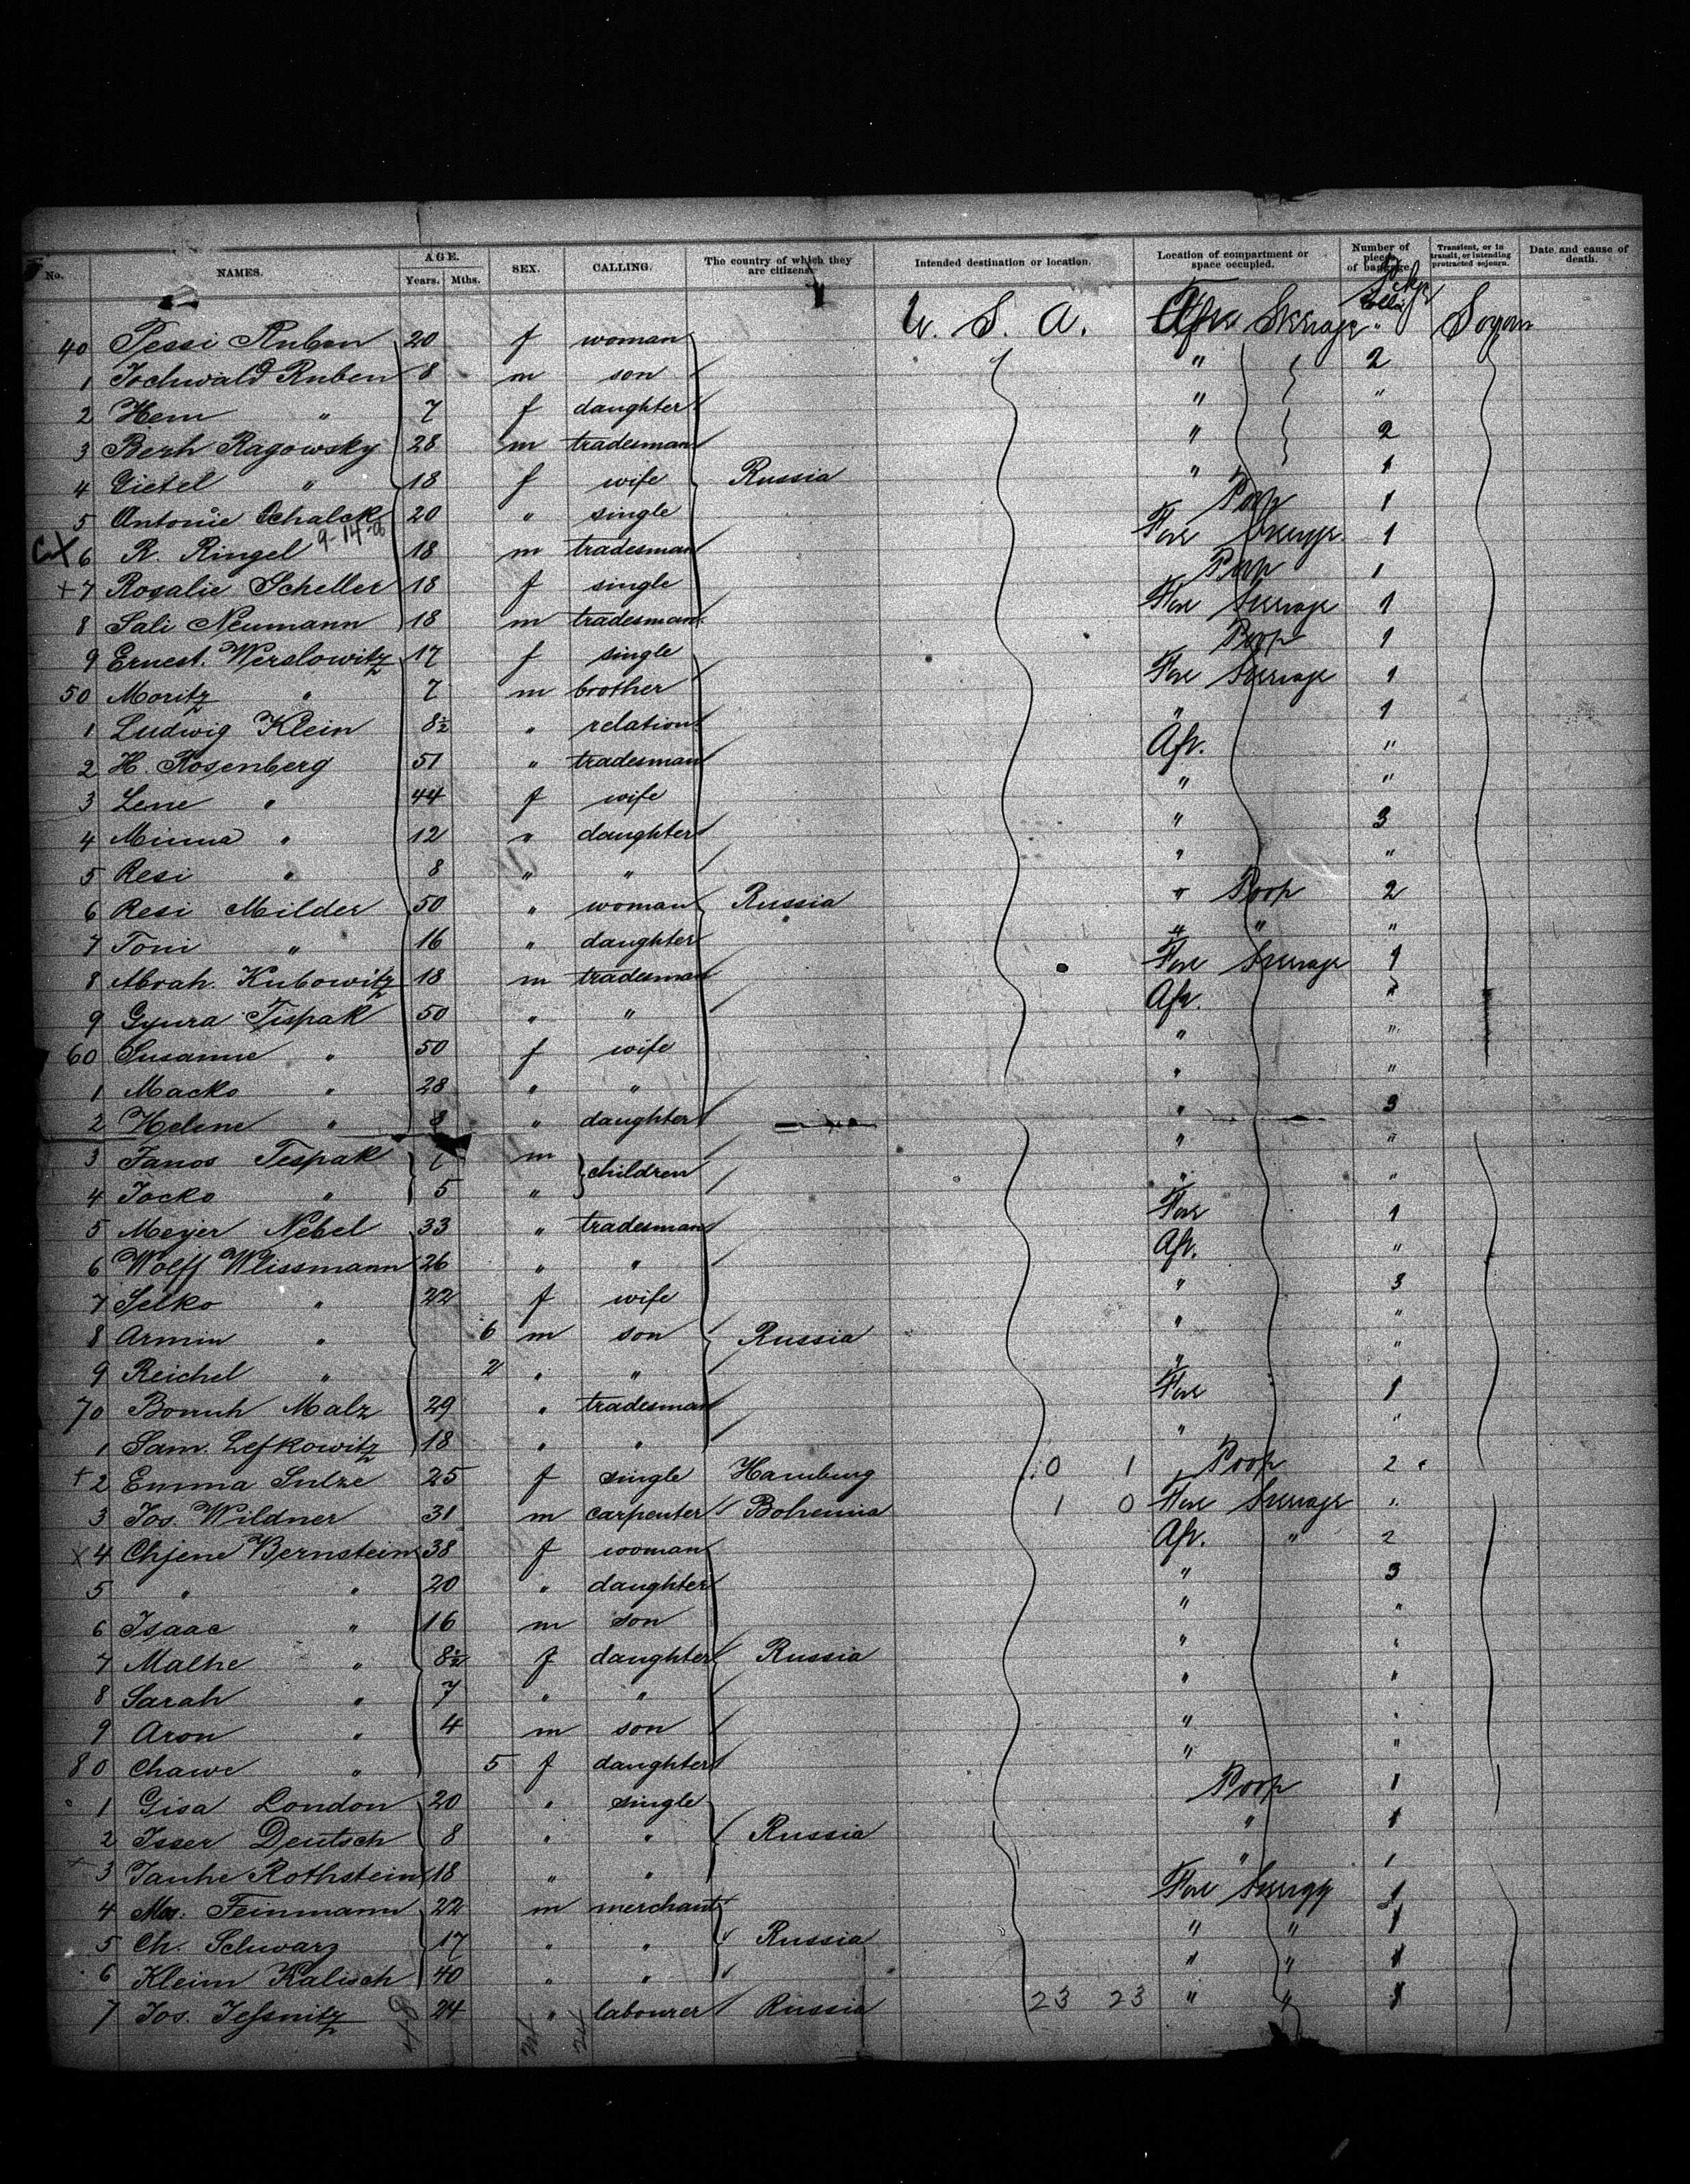 No. NAMES. AGE. Years. Mths. SEX. CALLING. The country of which they are citizens. Intended destination or location. Location of compartment or space occupied. Number of pieces of baggage. Transient, or in transit, or intending protracted sejourn. Date and cause of death.
40 Pessi Ruben 20 f woman U. S. A. Aft Steerage "
1 Jochwald Ruben 8 m son " 2
2 Hem " 7 f daughter " "
3 Berh Ragowsky 28 m tradesman " 2
4 Gietel " 18 f wife Russia " 1
5 Antonie Schalck 20 " single Poop 1
9-14-
CX 6 R. Ringel 18 m tradesman Fore Steerage 1
+ 7 Rosalie Scheller 18 f single Poop 1
8 Sali Neumann 18 m tradesman Fore Steerage 1
9 Ernest. Werslowitz 17 f single Poop 1
50 Moritz " 7 m brother Fore Steerage 1
1 Ludwig Klein 8½ " relation " 1
2 H. Rosenberg 51 " tradesman Aft. "
3 Lene " 44 f wife " "
4 Minna " 12 " daughter " 3
5 Resi " 8 " " " "
6 Resi Milder 50 " woman Russia " Poop 2
7 Toni " 16 " daughter " " "
8 Abrah. Kubowitz 18 m tradesman Fore Steerage 1
9 Gyura Tispak 50 " " Aft. "
60 Susanne " 50 f wife " "
1 Macko " 28 " " " "
2 Helene " 8 " daughter " 3
3 Janos Tespak m children " "
4 Jocko " 5 " " "
5 Meyer Nebel 33 " tradesman Fore 1
6 Wolff Wlissmann 26 " " Aft. "
7 Selko " 22 f wife " 3
8 Armin " 6 m son Russia " "
9 Reichel " 2 " " " "
70 Borruh Malz 29 " tradesman Fore 1
1 Sam. Lefkowitz 18 " " " "
+ 2 Emma Sulze 25 f single Hamburg 0 1 Poop 2
3 Jos. Wildner 31 m carpenter Bohemia 1 0 Fore Steerage "
x 4 Chjene Bernstein 38 f woman Aft. " 2
5 " " 20 " daughter " 3
6 Isaac " 16 m son " "
7 Malhe " 8½ f daughter Russia " "
8 Sarah " 7 " " " "
9 Aron " 4 m son " "
80 Chawe " 5 f daughter " "
1 Gisa London 20 " single Poop 1
2 Isser Deutsch 8 " " Russia " 1
+ 3 Tanhe Rothstein 18 " " " 1
4 Mos. Feinmann 22 m merchant Fore Steerage 1
5 Ch. Schwarz 17 " " Russia " " 1
6 Kleim Kalisch 40 " " " " 1
7 Jos. Jeßnitz 24 " labourer Russia 23 23 " " 1